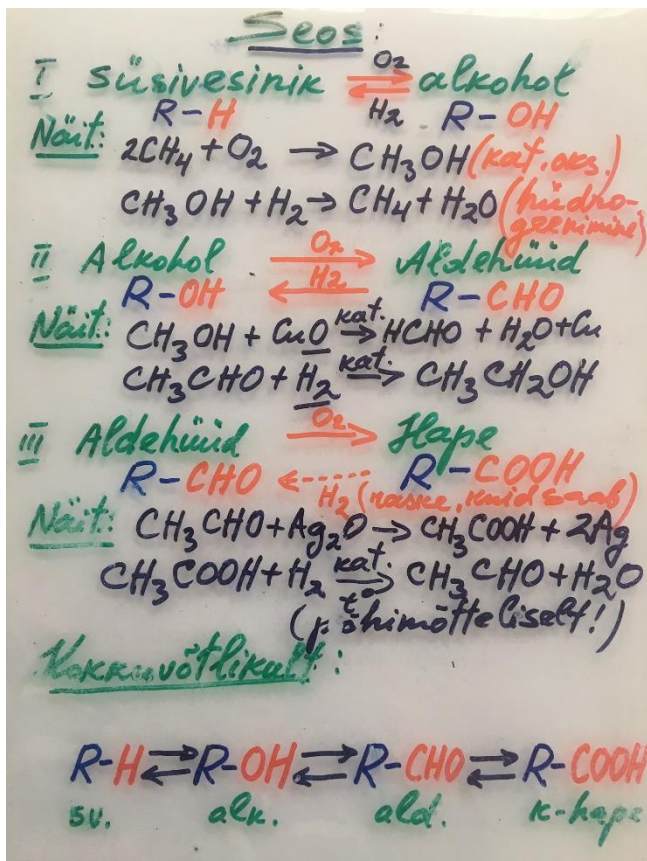 Seos:
I süsivesinik ⇌ alkohol
O₂
H₂
R-H R-OH
Näit: 2CH₄ + O₂ → CH₃OH (kat. oks.)
CH₃OH + H₂ → CH₄ + H₂O (hüdro-
geenimine)
II Alkohol O₂ Aldehüüd
H₂
R-OH R-CHO
Näit: CH₃OH + CuO kat.→ HCHO + H₂O + Cu
CH₃CHO + H₂ kat.→ CH₃CH₂OH
III Aldehüüd O₂→ Hape
R-CHO R-COOH
H₂ (raske, kuid saab)
Näit: CH₃CHO + Ag₂O → CH₃COOH + 2Ag
CH₃COOH + H₂ kat. t°→ CH₃CHO + H₂O
(põhimõtteliselt!)
Kokkuvõtlikult:
R-H ⇌ R-OH ⇌ R-CHO ⇌ R-COOH
sv. alk. ald. k-hape